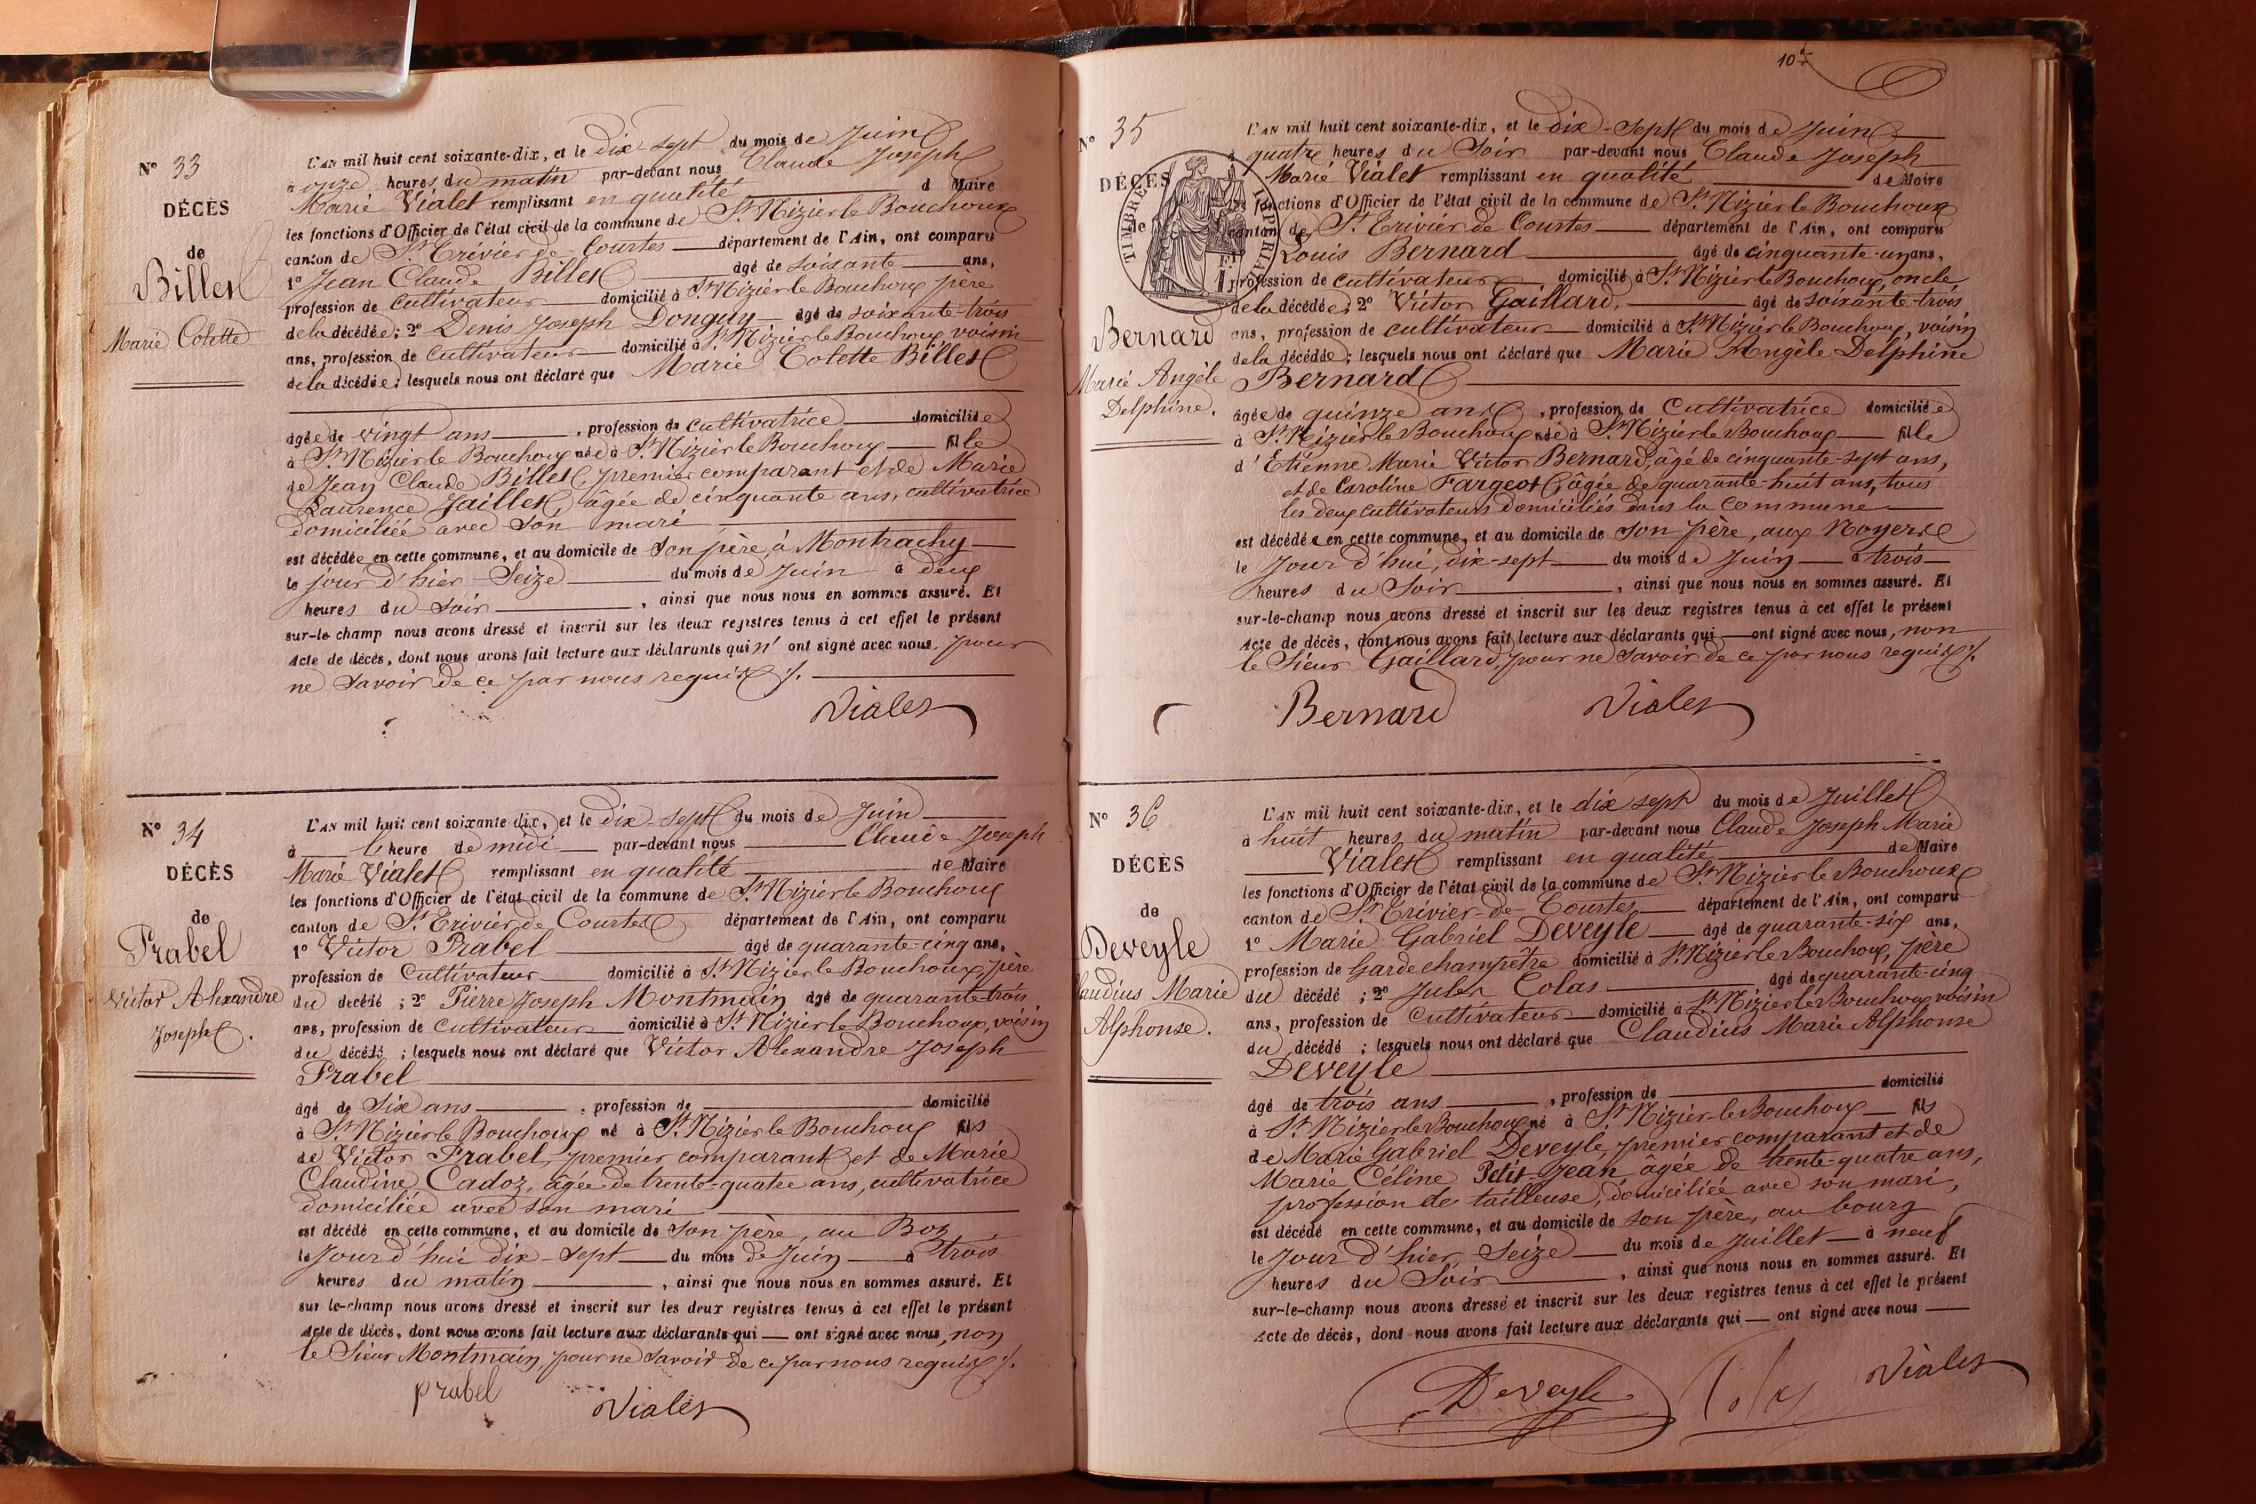 N° 33
DÉCÈS
de
Billet
Marie Colette
L'AN mil huit cent soixante-dix, et le dix-sept du mois de Juin
à onze heures du matin par-devant nous Claude Joseph
Marie Vialet remplissant en qualité d Maire
les fonctions d'Officier de l'état civil de la commune de St Nizier le Bouchoux
canton de St Trivier de Courtes département de l'Ain, ont comparu
1° Jean Claude Billet âgé de soixante ans,
profession de cultivateur domicilié à St Nizier le Bouchoux père
de la décédée ; 2° Denis Joseph Donguy âgé de soixante-trois
ans, profession de cultivateur domicilié à St Nizier le Bouchoux, voisin
de la décédée ; lesquels nous ont déclaré que Marie Colette Billet
âgée de vingt ans, profession de cultivatrice domiciliée
à St Nizier le Bouchoux née à St Nizier le Bouchoux fille
de Jean Claude Billet, premier comparant et de Marie
Laurence Jaillet, âgée de cinquante ans, cultivatrice
domiciliée avec son mari
est décédée en cette commune, et au domicile de son père, à Montrachy
le jour d'hier Seize du mois de Juin à deux
heures du Soir, ainsi que nous nous en sommes assuré. Et
sur-le-champ nous avons dressé et inscrit sur les deux registres tenus à cet effet le présent
Acte de décès, dont nous avons fait lecture aux déclarants qui n' ont signé avec nous, pour
ne savoir de ce par nous requis ./.
Vialet
N° 34
DÉCÈS
de
Prabel
Victor Alexandre
Joseph.
L'AN mil huit cent soixante-dix, et le dix-sept du mois de Juin
à l' heure de midi par-devant nous Claude Joseph
Marie Vialet remplissant en qualité de Maire
les fonctions d'Officier de l'état civil de la commune de St Nizier le Bouchoux
canton de St Trivier de Courtes département de l'Ain, ont comparu
1° Victor Prabel âgé de quarante-cinq ans,
profession de cultivateur domicilié à St Nizier le Bouchoux, père
du décédé ; 2° Pierre Joseph Montmain âgé de quarante-trois
ans, profession de cultivateur domicilié à St Nizier le Bouchoux, voisin
du décédé ; lesquels nous ont déclaré que Victor Alexandre Joseph
Prabel
âgé de Six ans, profession de domicilié
à St Nizier le Bouchoux né à St Nizier le Bouchoux fils
de Victor Prabel, premier comparant et de Marie
Claudine Cadoz, âgée de trente-quatre ans, cultivatrice
domiciliée avec son mari
est décédé en cette commune, et au domicile de son père, au Boz
le Jour d'hui dix-sept du mois de Juin à trois
heures du matin, ainsi que nous nous en sommes assuré. Et
sur le-champ nous avons dressé et inscrit sur les deux registres tenus à cet effet le présent
Acte de décès, dont nous avons fait lecture aux déclarants qui ont signé avec nous, non
le Sieur Montmain, pour ne savoir de ce par nous requis ./.
prabel Vialet
107
N° 35
DÉCÈS
de
TIMBRE IMPERIAL
Bernard
Marie Angèle
Delphine.
L'AN mil huit cent soixante-dix, et le dix-sept du mois de Juin
à quatre heures du Soir par-devant nous Claude Joseph
Marie Vialet remplissant en qualité de Maire
les fonctions d'Officier de l'état civil de la commune de St Nizier le Bouchoux
canton de St Trivier de Courtes département de l'Ain, ont comparu
1° Louis Bernard âgé de cinquante-un ans,
profession de cultivateur domicilié à St Nizier le Bouchoux, oncle
de la décédée ; 2° Victor Gaillard, âgé de soixante-trois
ans, profession de cultivateur domicilié à St Nizier le Bouchoux, voisin
de la décédée ; lesquels nous ont déclaré que Marie Angèle Delphine
Bernard
âgée de quinze ans, profession de Cultivatrice domiciliée
à St Nizier le Bouchoux née à St Nizier le Bouchoux fille
d'Étienne Marie Victor Bernard, âgé de cinquante-sept ans,
et de Caroline Fargeot, âgée de quarante-huit ans, tous
les deux cultivateurs domiciliés dans la commune
est décédée en cette commune, et au domicile de son père, aux Noyers
le Jour d'hui, dix-sept du mois de Juin à trois
heures du Soir, ainsi que nous nous en sommes assuré. Et
sur-le-champ nous avons dressé et inscrit sur les deux registres tenus à cet effet le présent
Acte de décès, dont nous avons fait lecture aux déclarants qui ont signé avec nous, non
le Sieur Gaillard, pour ne savoir de ce par nous requis ./.
Bernard Vialet
N° 36
DÉCÈS
de
Deveyle
Claudius Marie
Alphonse.
L'AN mil huit cent soixante-dix, et le dix sept du mois de Juillet
à huit heures du matin par-devant nous Claude Joseph Marie
Vialet remplissant en qualité de Maire
les fonctions d'Officier de l'état civil de la commune de St Nizier le Bouchoux
canton de St Trivier-de-Courtes département de l'Ain, ont comparu
1° Marie Gabriel Deveyle âgé de quarante-six ans,
profession de Garde champêtre domicilié à St Nizier le Bouchoux, père
du décédé ; 2° Jules Colas âgé de quarante-cinq
ans, profession de cultivateur domicilié à St Nizier le Bouchoux voisin
du décédé ; lesquels nous ont déclaré que Claudius Marie Alphonse
Deveyle
âgé de trois ans, profession de domicilié
à St Nizier le Bouchoux né à St Nizier-le Bouchoux fils
de Marie Gabriel Deveyle, premier comparant et de
Marie Céline Petit-Jean âgée de trente-quatre ans,
profession de tailleuse, domiciliée avec son mari,
est décédé en cette commune, et au domicile de son père, au bourg
le Jour d'hier, Seize du mois de Juillet à neuf
heures du Soir, ainsi que nous nous en sommes assuré. Et
sur-le-champ nous avons dressé et inscrit sur les deux registres tenus à cet effet le présent
Acte de décès, dont nous avons fait lecture aux déclarants qui ont signé avec nous
Deveyle Colas Vialet